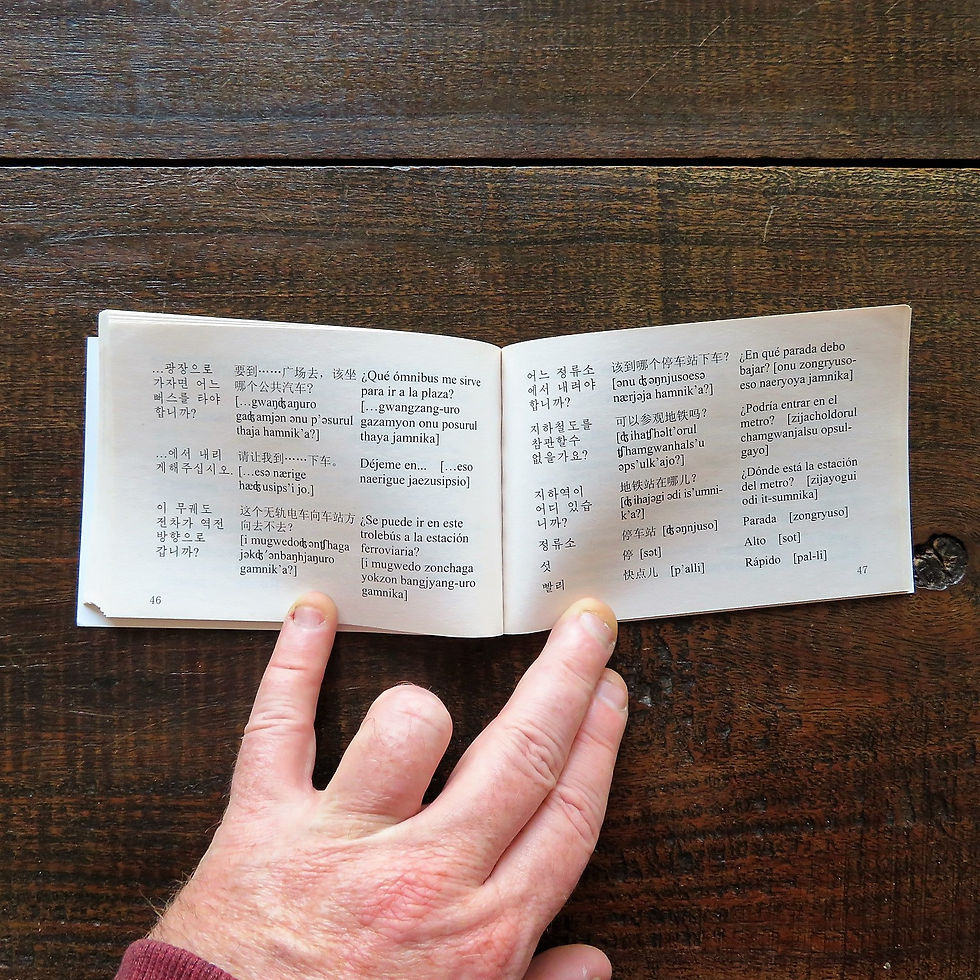 ...광장으로
가자면 어느
뻐스를 타야
합니까?
要到……广场去，该坐
哪个公共汽车?
[…gwaŋʤaŋuro
gaʤamjən ənu p'əsurul
thaja hamnik'a?]
¿Qué ómnibus me sirve
para ir a la plaza?
[…gwangzang-uro
gazamyon onu posurul
thaya jamnika]
...에서 내리
게해주십시오.
请让我到……下车。
[…esə nærige
hæʤusips'i jo.]
Déjeme en... […eso
naerigue jaezusipsio]
이 무궤도
전차가 역전
방향으로
갑니까?
这个无轨电车向车站方
向去不去?
[i mugwedoʤənʧhaga
jəkʤ'ənbaŋhjaŋuro
gamnik'a?]
¿Se puede ir en este
trolebús a la estación
ferroviaria?
[i mugwedo zonchaga
yokzon bangjyang-uro
gamnikka]
46
어느 정류소
에서 내려야
합니까?
该到哪个停车站下车?
[ənu ʤəŋnjusoesə
nærjəja hamnik'a?]
¿En qué parada debo
bajar? [onu zongryuso-
eso naeryoya jamnika]
지하철도를
참관할수
없을가요?
可以参观地铁吗?
[ʤihaʧhəlt'orul
ʧhamgwanhals'u
əps'ulk'ajo?]
¿Podría entrar en el
metro? [zijacholdorul
chamgwanjalsu opsul-
gayo]
지하역이
어디 있습
니까?
地铁站在哪儿?
[ʤihajəgi ədi is'umni-
k'a?]
¿Dónde está la estación
del metro? [zijayogui
odi it-sumnika]
정류소
停车站 [ʤəŋnjuso]
Parada [zongryuso]
섯
停 [sət]
Alto [sot]
빨리
快点儿 [p'alli]
Rápido [pal-li]
47